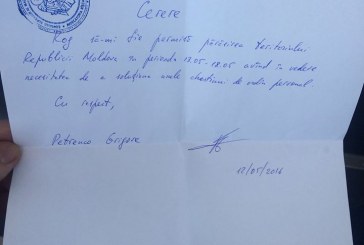 Cerere
Rog să-mi fie permisă părăsirea teritoriului
Republicii Moldova în perioada 13.05-18.05 având în vedere
necesitatea de a soluționa unele chestiuni de ordin personal.
Cu respect,
Petrenco Grigore
12/05/2016